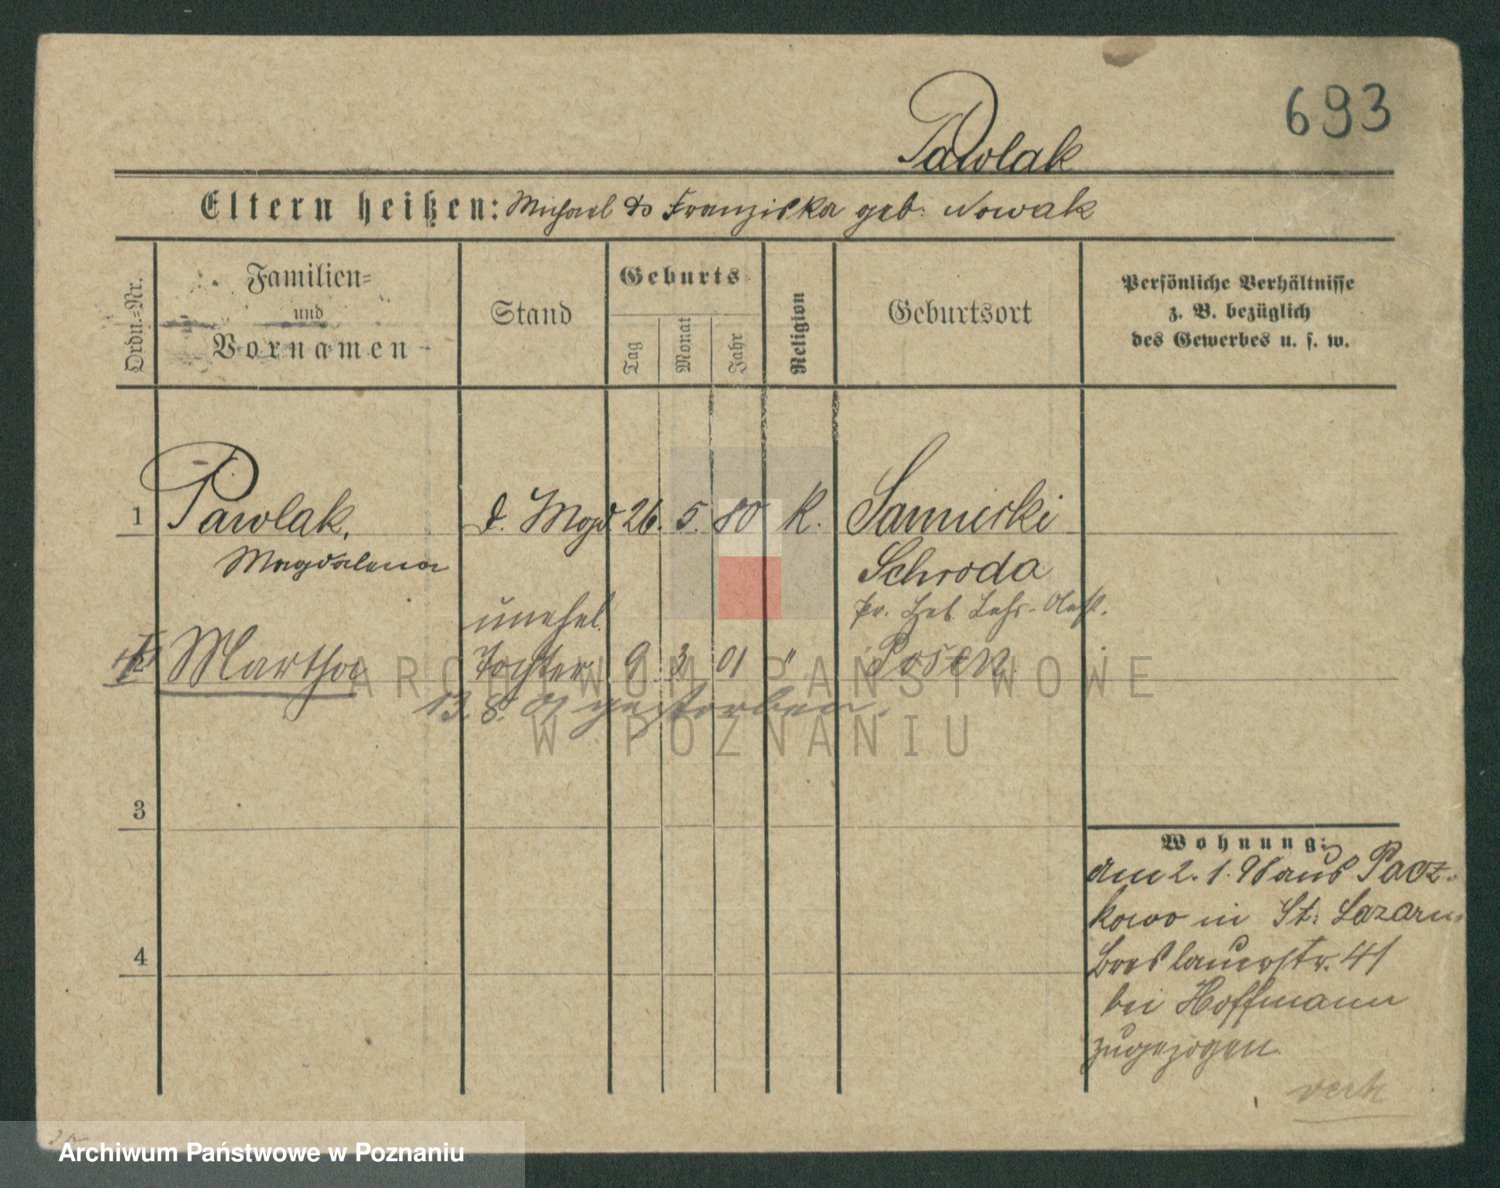 693
Pawlak
Eltern heißen: Michael & Franziska geb. Nowak
Ordn.-Nr.
Familien- und Vornamen
Stand
Geburts-
Tag
Monat
Jahr
Religion
Geburtsort
Persönliche Verhältnisse
z. B. bezüglich
des Gewerbes u. s. w.
1 Pawlak, d. Mgd 26. 5. 80 K.
Magdalena Schroda
unehel. Pr. Heb. Lehr-Anst.
Martha Tochter 9 3 01 " Posen
13. 8. 01 gestorben.
ARCHIWUM PAŃSTWOWE
W POZNANIU
3
4
Wohnung:
Am 2. 1. 98 aus Pacz-
kowo in St. Lazarus
Breslauerstr. 41
bei Hoffmann
zugezogen.
Archiwum Państwowe w Poznaniu